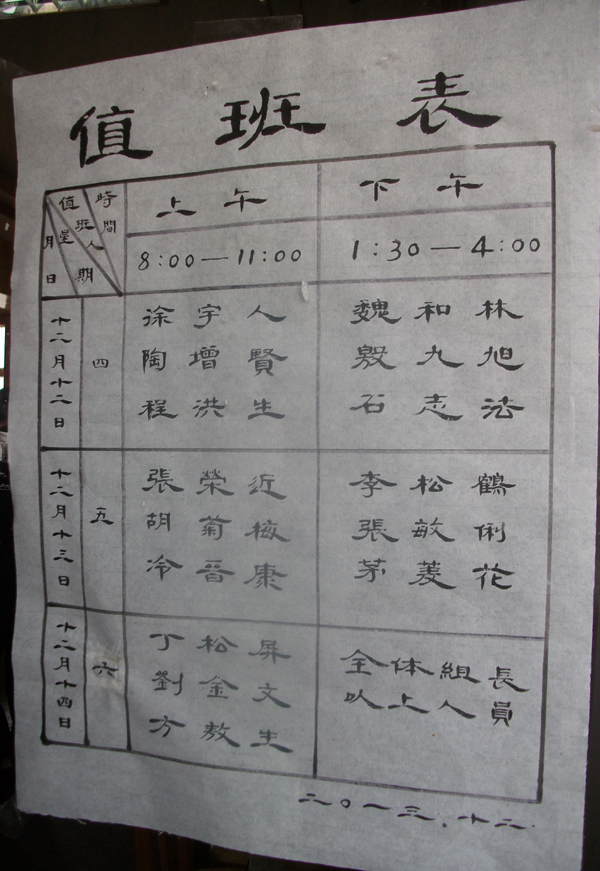 值班表
時間
值班人
星期
月日
上午
下午
8:00—11:00
1:30—4:00
十二月十二日
四
徐宇人
陶增賢
程洪生
魏和林
殷九旭
石志法
十二月十三日
五
張榮近
胡菊梅
冷晉康
李松鶴
張敏俐
茅菱花
十二月十四日
六
丁松屏
劉金文
方敖生
全体組長
以上人員
二〇一三.十二.